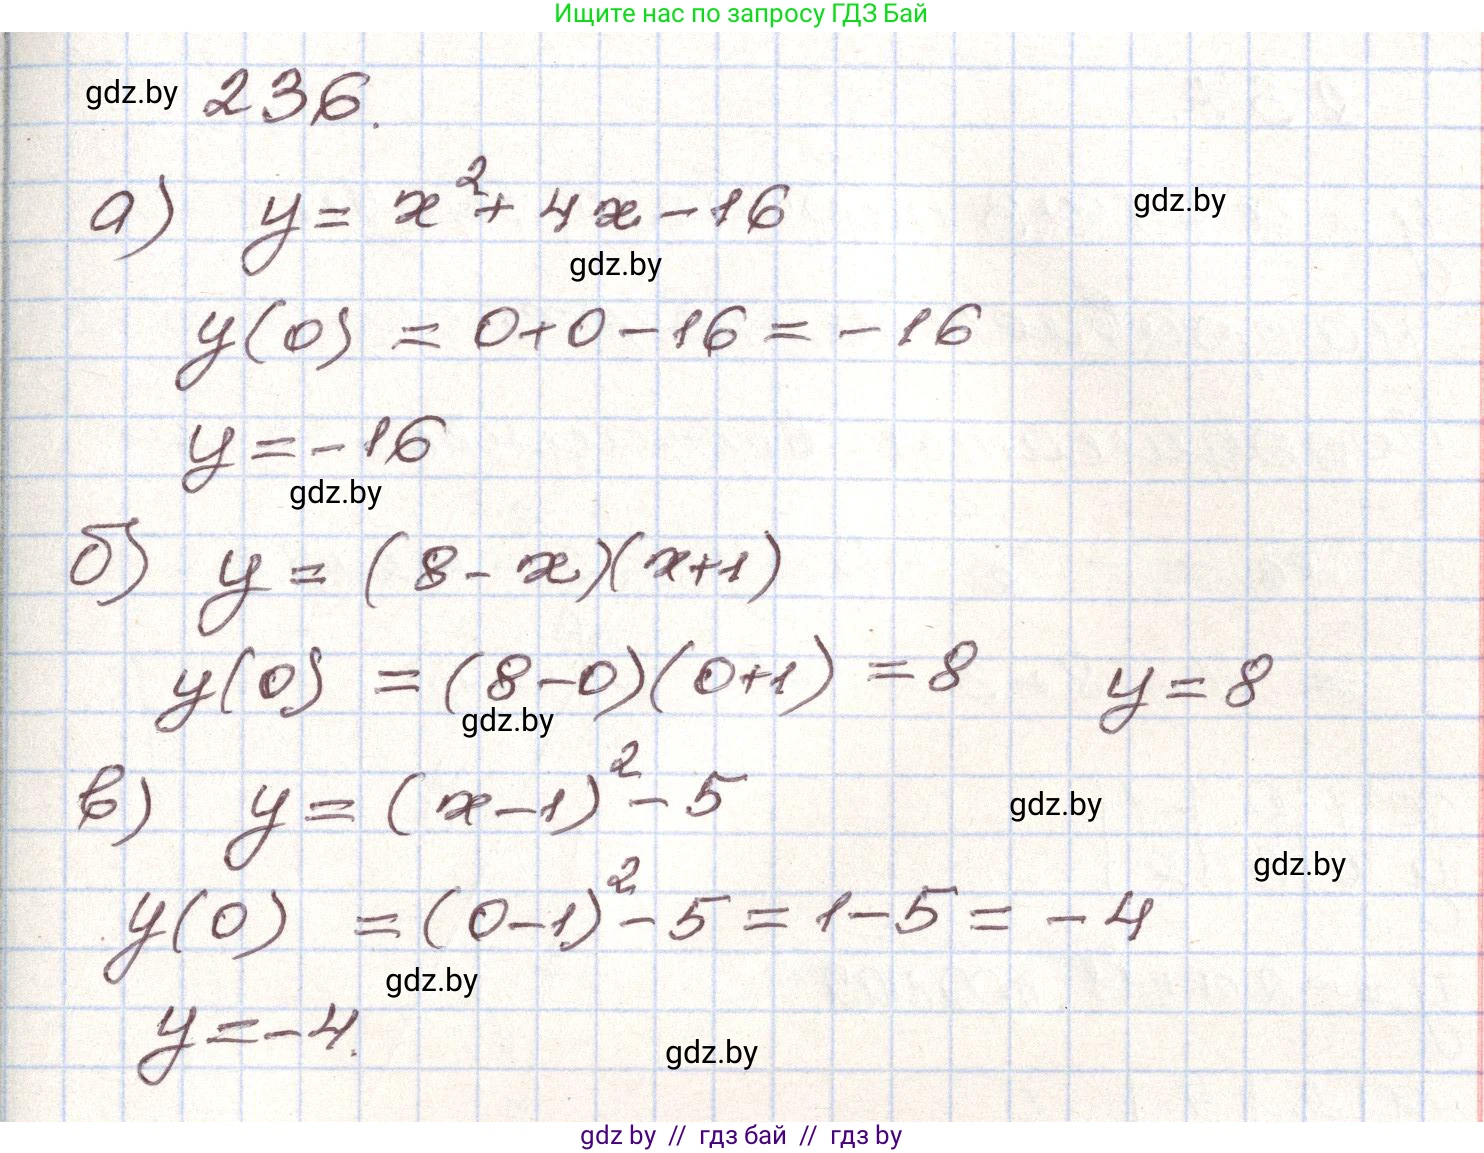 Ищите нас по запросу ГДЗ Бай
gdz.by 236.
а) y = x² + 4x - 16
gdz.by
gdz.by
y(0) = 0+0-16 = -16
y = -16
gdz.by
б) y = (8-x)(x+1)
y(0) = (8-0)(0+1) = 8 y = 8
gdz.by
в) y = (x-1)² - 5
gdz.by
gdz.by
y(0) = (0-1)² - 5 = 1-5 = -4
gdz.by
y = -4.
gdz.by
gdz by // гдз бай // гдз by